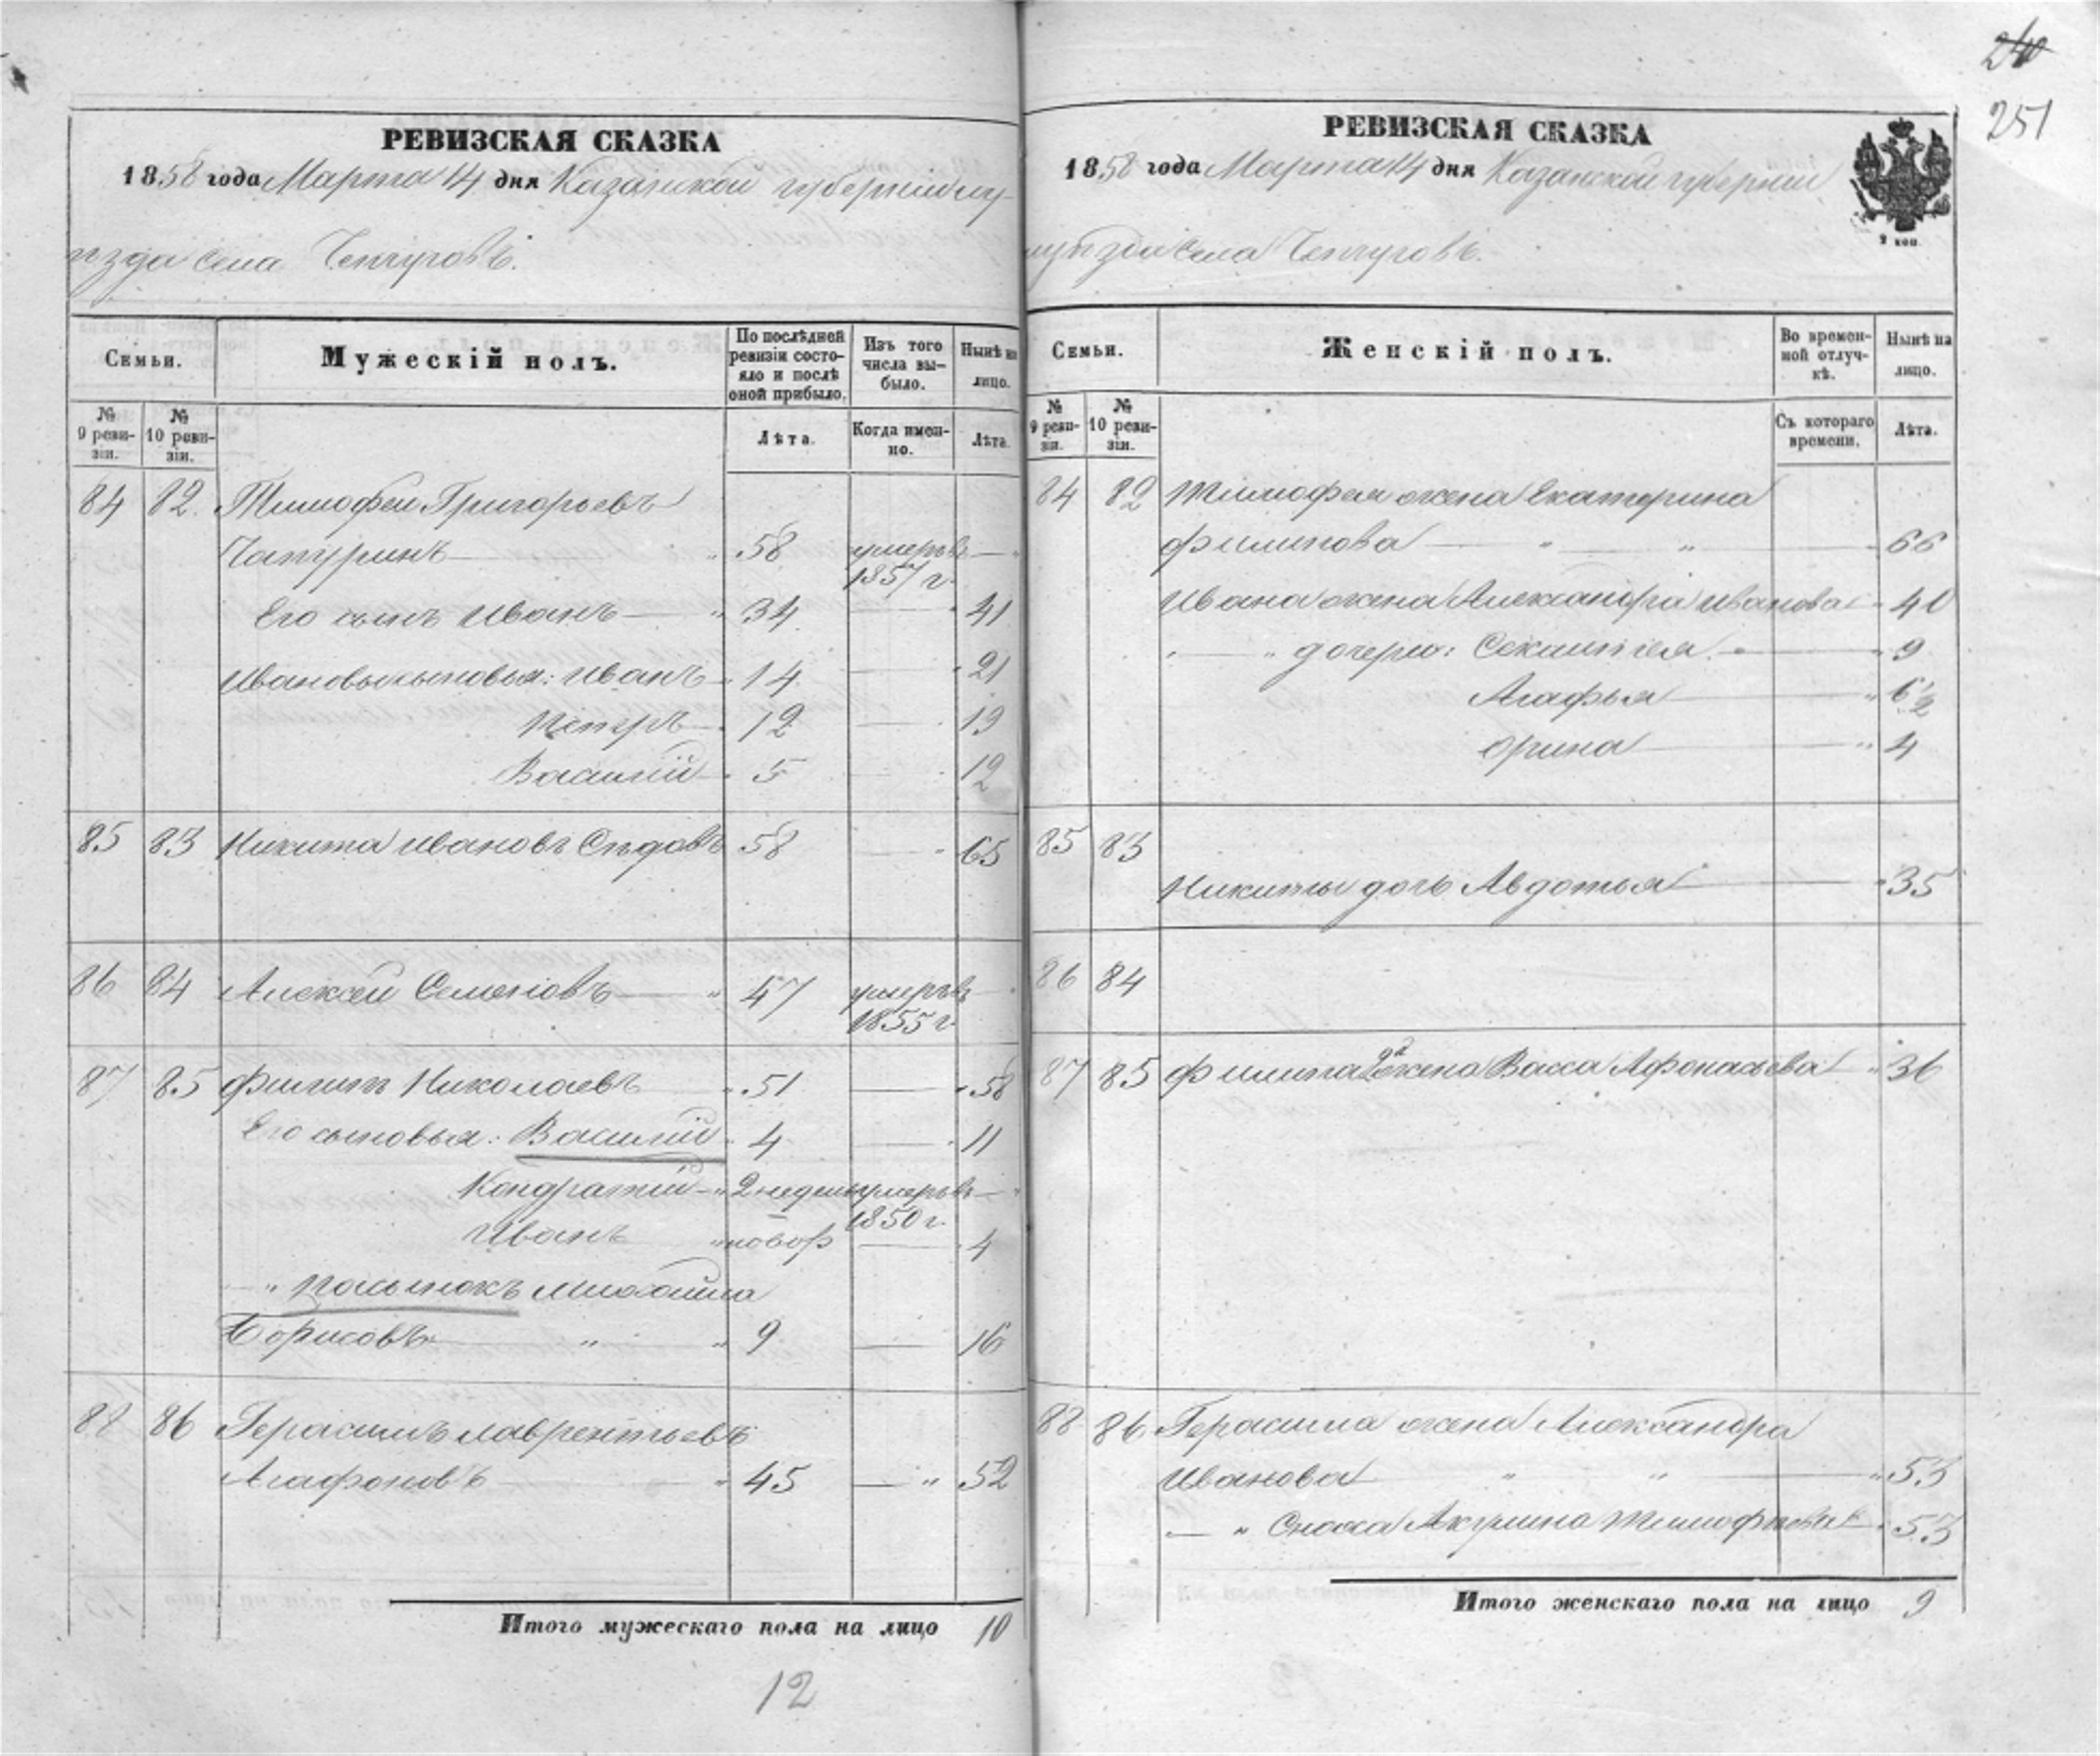 24
251
РЕВИЗСКАЯ СКАЗКА
1858 года Марта 14 дня Казанской губернии и у-
ѣзда села Чепчуговъ.
Семьи. Мужескій полъ. По послѣдней ревизіи состояло и послѣ оной прибыло. Изъ того числа выбыло. Нынѣ на лицо.
№ 9 ревизіи. № 10 ревизіи. Лѣта. Когда именно. Лѣта.
84 82. Тимофей Григорьевъ
Чапуринъ 58 умеръ
1857 г.
Его сынъ Иванъ 34 41
Ивановы сыновья: Иванъ 14 21
Петръ 12 19
Василій 5 12
85 83 Никита Ивановъ Сѣдовъ 58 65
86 84 Алексей Семеновъ 47 умеръ
1855 г.
87 85 Филипъ Николаевъ 51 58
Его сыновья: Василій 4 11
Кондратій 2 недели умеръ
1850 г.
Иванъ новор 4
" пасынокъ Михайла
Борисовъ " " 9 16
88 86 Герасимъ Лаврентьевъ
Агафоновъ 45 " 52
Итого мужескаго пола на лицо 10
12
РЕВИЗСКАЯ СКАЗКА
1858 года Марта 14 дня Казанской губернии
и уѣзда села Чепчуговъ.
2 коп.
Семьи. Женскій полъ. Во временной отлучкѣ. Нынѣ на лицо.
№ 9 ревизіи. № 10 ревизіи. Съ котораго времени. Лѣта.
84 82 Тимофея жена Екатерина
Филипова " " 66
Ивана жена Александра Иванова 40
" дочери: 9
Агафья 6 1/2
Орина 4
85 83
Никиты дочь Авдотья 35
86 84
87 85 Филипа 2я жена Васса Афонасьева 36
88 86 Герасима жена Александра
Иванова " " 53
" Сноха Акулина Тимофѣева 53
Итого женскаго пола на лицо 9